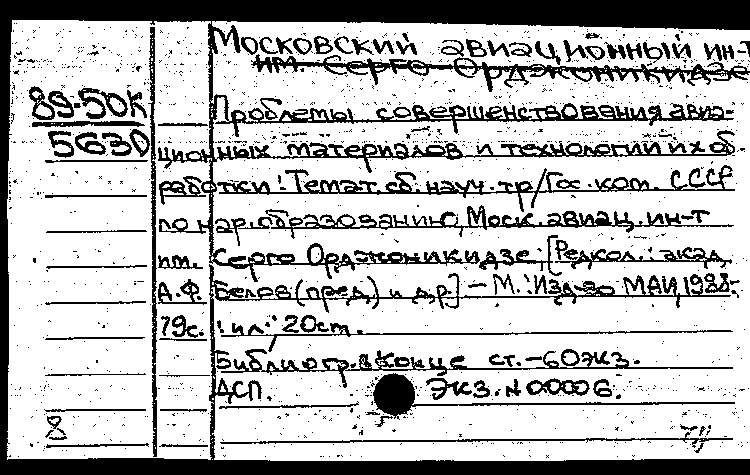 Московский авиационный ин-т
им. Серго Орджоникидзе
89-50К
5630
Проблемы совершенствования авиа-
ционных материалов и технологии их об-
работки : Темат. сб. науч. тр/Гос. ком. СССР
по нар. образованию, Моск. авиац. ин-т
им. Серго Орджоникидзе; [Редкол.: акад.
А.Ф. Белов (пред.) и др.] – М.: Изд-во МАИ, 1988.-
79с. : ил.; 20см.
Библиогр. в конце ст. – 60экз.
ДСП. Экз. N 00006.
8